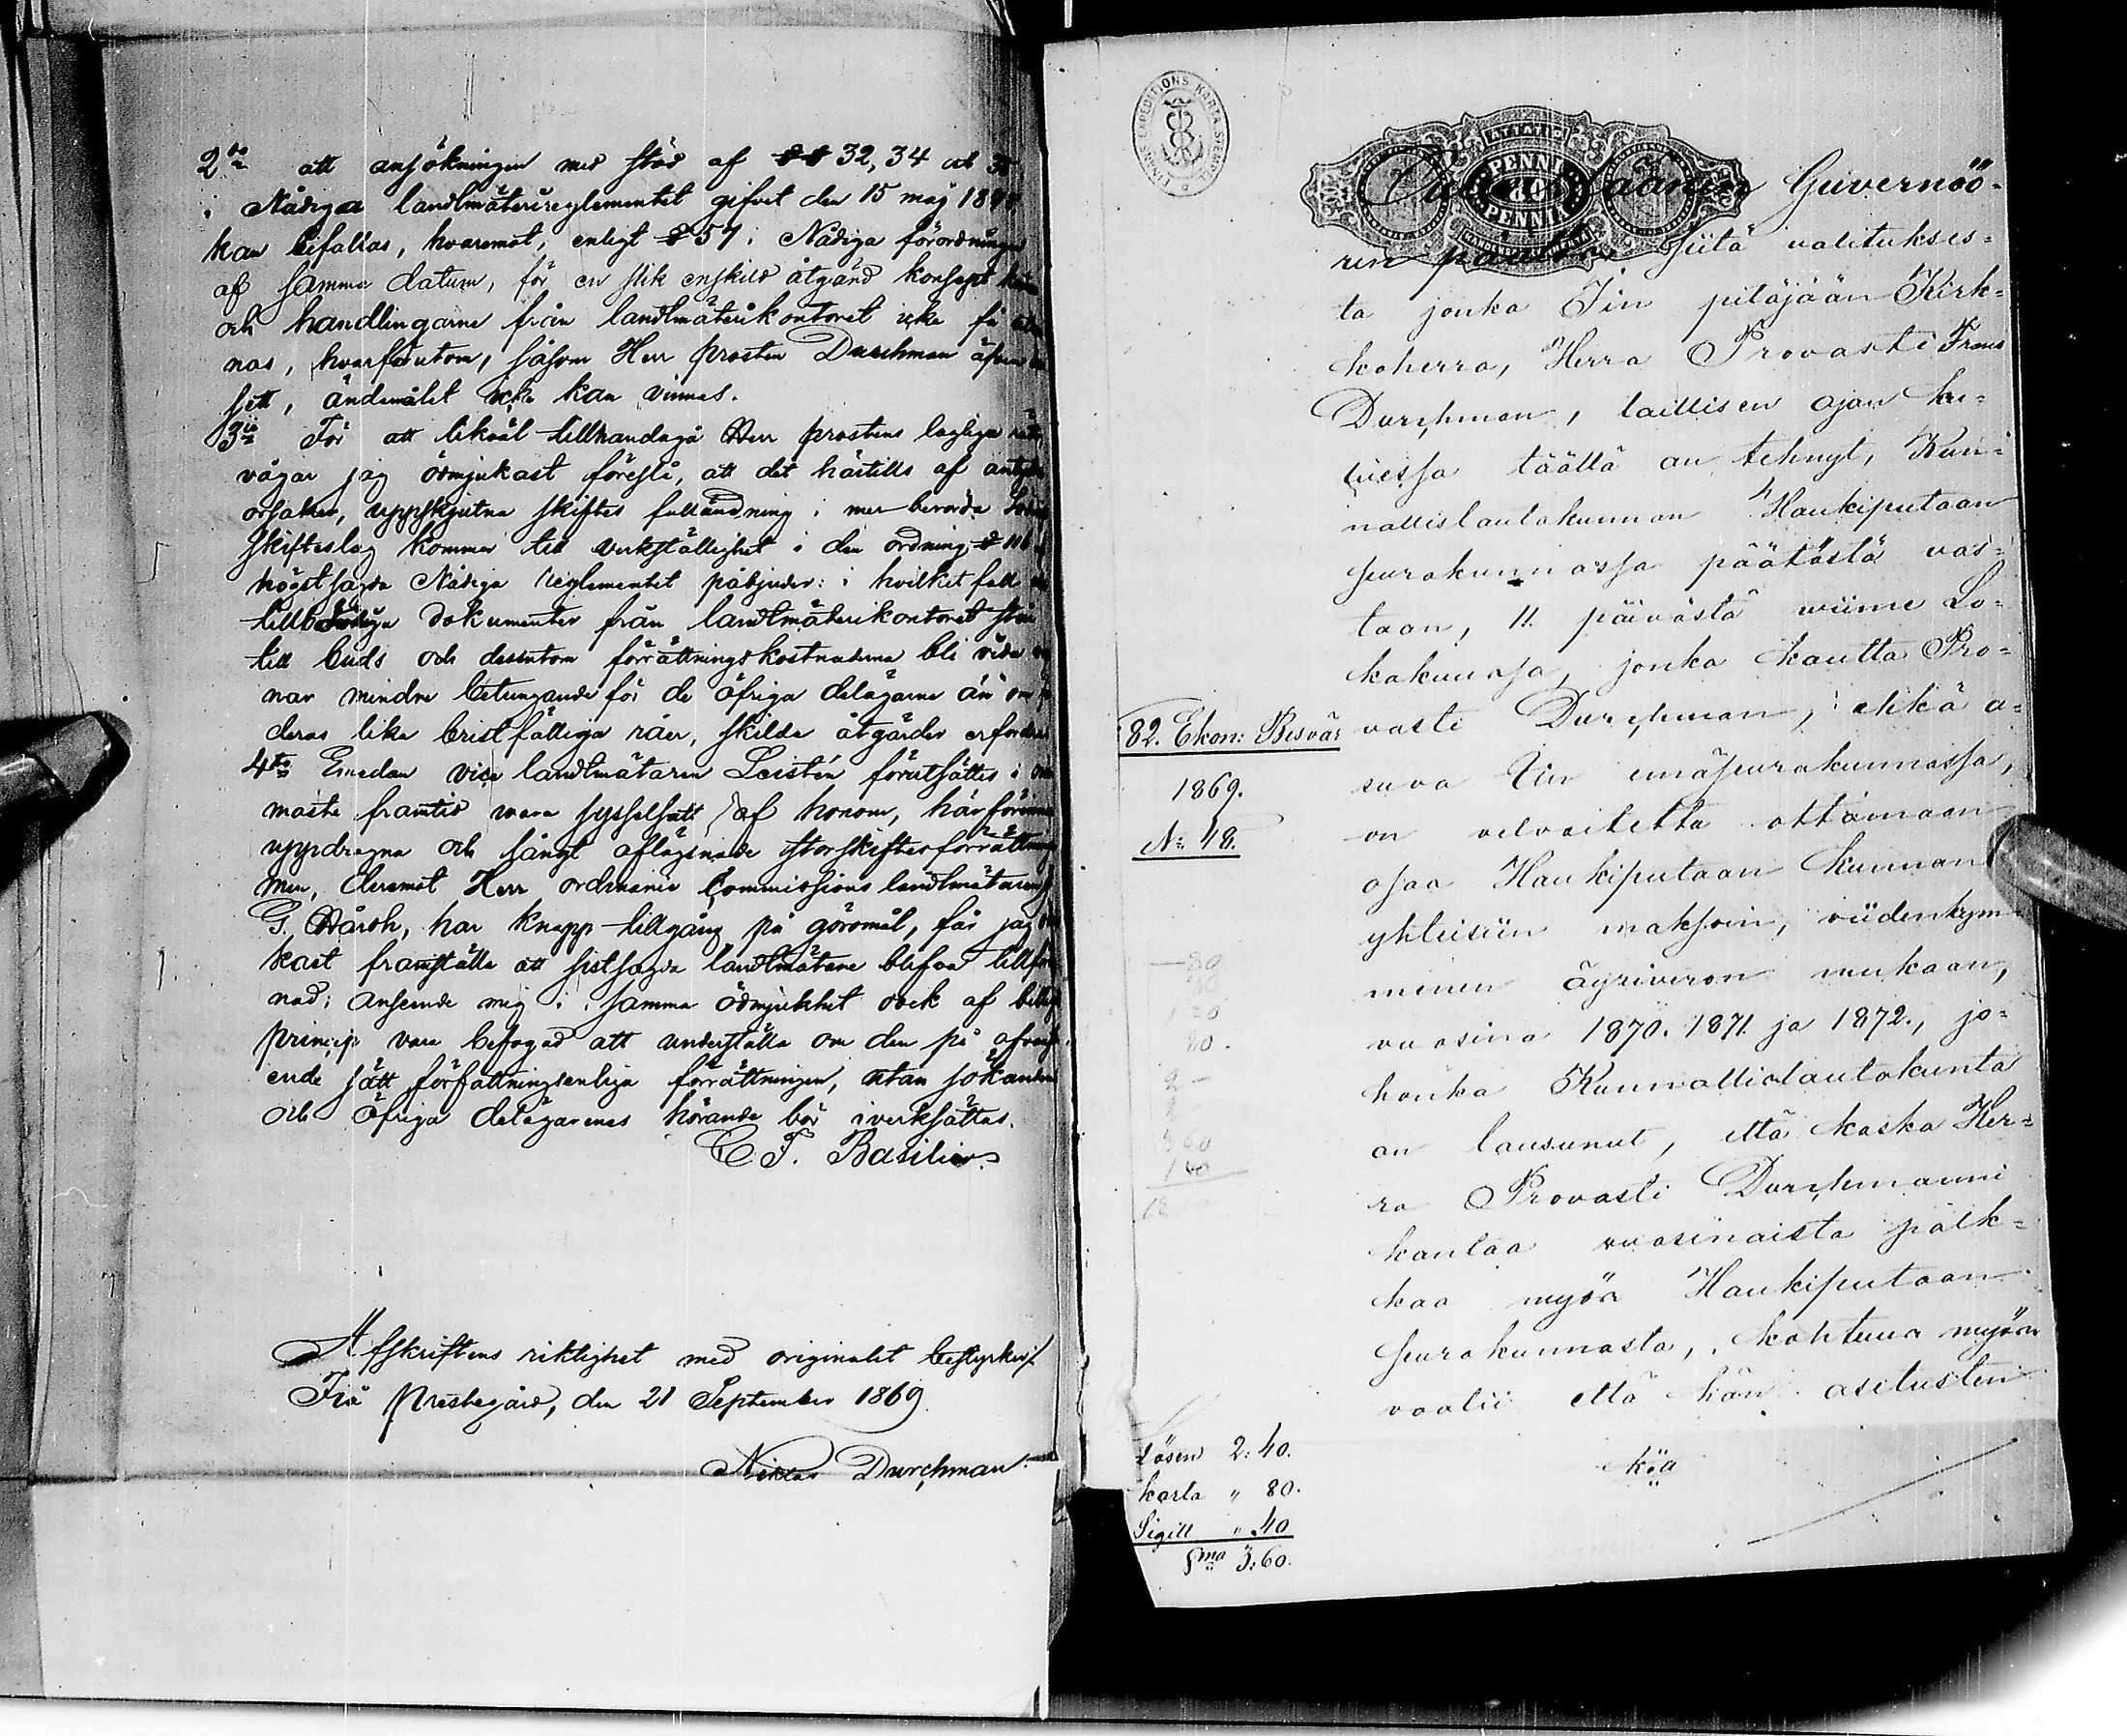 2do att ansökningen med stöd af §§ 32, 34 och 35
i Nådiga landtmäterireglementet gifvet den 15 maj 1848
kan bifallas, hvaremot, enligt § 57 i Nådiga förordningen
af samma datum, för en slik enskild åtgärd konsept
och handlingarne från landtmäterikontoret icke få
nas, hvarförutom, såsom Herr Prosten Durchman äfven
sett, ändamålet icke kan vinnas.
3tio För att likväl tillhandagå Herr Prostens lagliga
vågar jag ödmjukast föreslå, att det härtills af
orsaker, uppskjutna skiftes fulländning i mer berörda
skifteslag kommer till verkställighet i den ordning § 116
högstsagda Nådiga reglementet påbjuder: i hvilket fall
dokumenter från landtmäterikontoret
till buds och dessutom förrättningskostnaderna bli vida
nar mindre betungande för de öfriga delägarne än om
deras lika bristfälliga råer, skilda åtgärder
4to Emedan vice landtmätaren Leistén förutsättes i
maste framtid vara sysselsatt af honom, härförinnan
uppdragna och långt aflägsnade storskiftesförrättningar
men, deremot Herr ordinarie Commissions landtmätaren
G. Hårdh, har knapp tillgång på göromål, får jag
kast framställa att sistsagda landtmätare blefve
nad; anseende mig i samma ödmjukhet ock af
princip vara befogad att underställa om den på
ende sätt författningsenliga förrättningen, utan sökandens
och öfriga delägarenes hörande bör iverksättas.
C. F. Basilier.
Afskriftens riktighet med originalet bestyrker/
Iiå prestegård, den 21 September 1869.
Niklas Durchman
LIMNS EXPEDITIONS KARTA STEMPEL
80 PENNI PENNIÄ
Oulun Läänin Guvernöö-
rin päätös siitä valitukses-
ta jonka Iin pitäjään Kirk-
koherra, Herra Provasti Frans
Durchman, laillisen ajan ku-
luessa täällä on tehnyt, Kun-
nallislautakunnan Haukiputaan
seurakunnassa päätöstä vas-
taan, 11. päivästä viime Lo-
kakuussa, jonka kautta Pro-
vasti Durchman, ehkä a-
suva Iin emäseurakunnassa,
on velvoitettu ottamaan
osaa Haukiputaan kunnan
yhteisiin maksoin, viidenkym-
menen äyriveron mukaan,
vuosina 1870. 1871. ja 1872., jo-
honka Kunnallislautakunta
on lausunut, että koska Her-
ra Provasti Durchmanni
kantaa vuosinaista palk-
kaa myös Haukiputaan
seurakunnasta, kohtuus myös
vaatii että hän asetusten
82. Ekon: Besvär
1869.
No 48.
Lösen 2:40.
Karta " 80.
Sigill " 40
Sma 3:60.